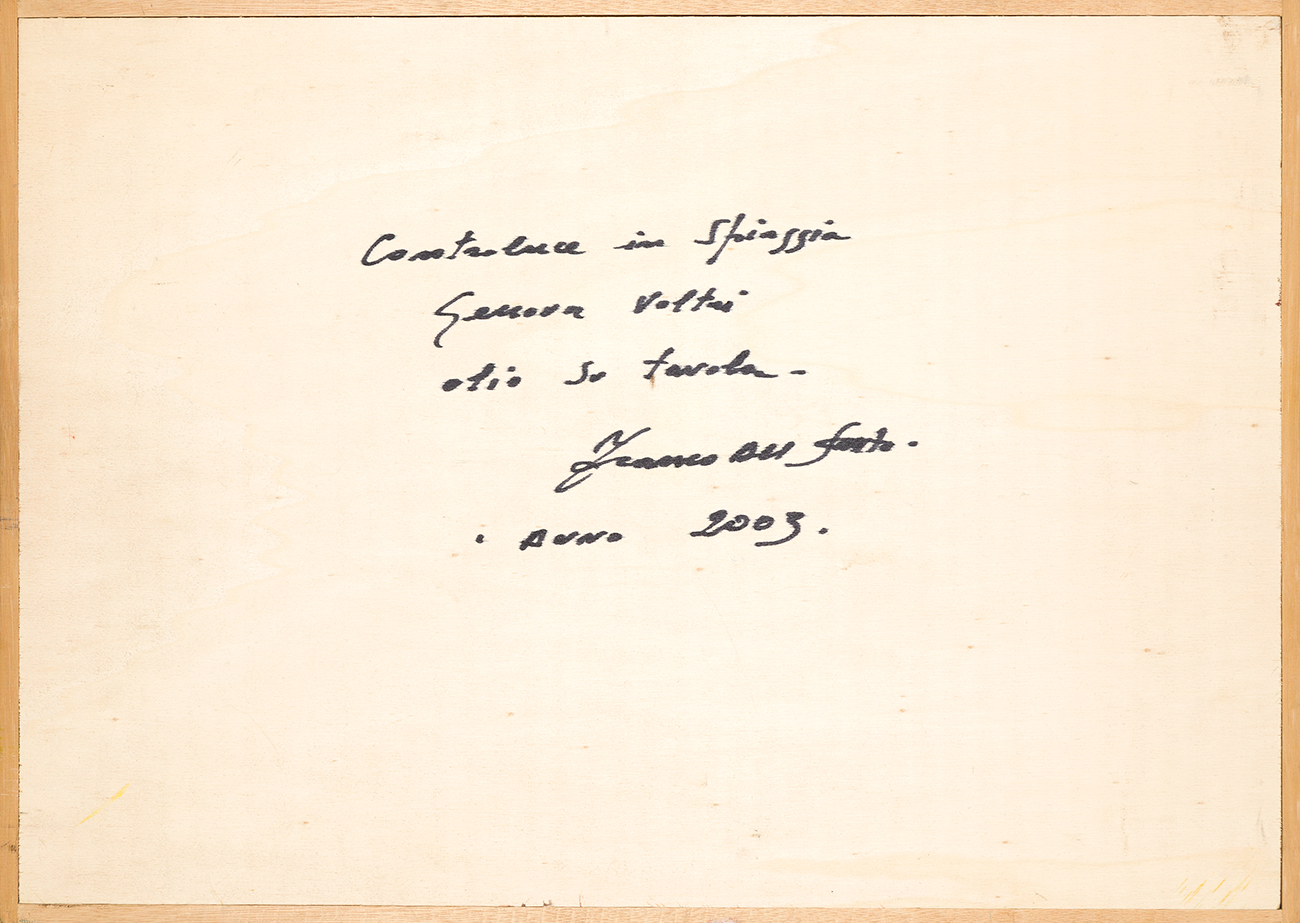 Controluce in Spiaggia
Genova Voltri
olio su tavola -
Franco Del
. Anno 2003.